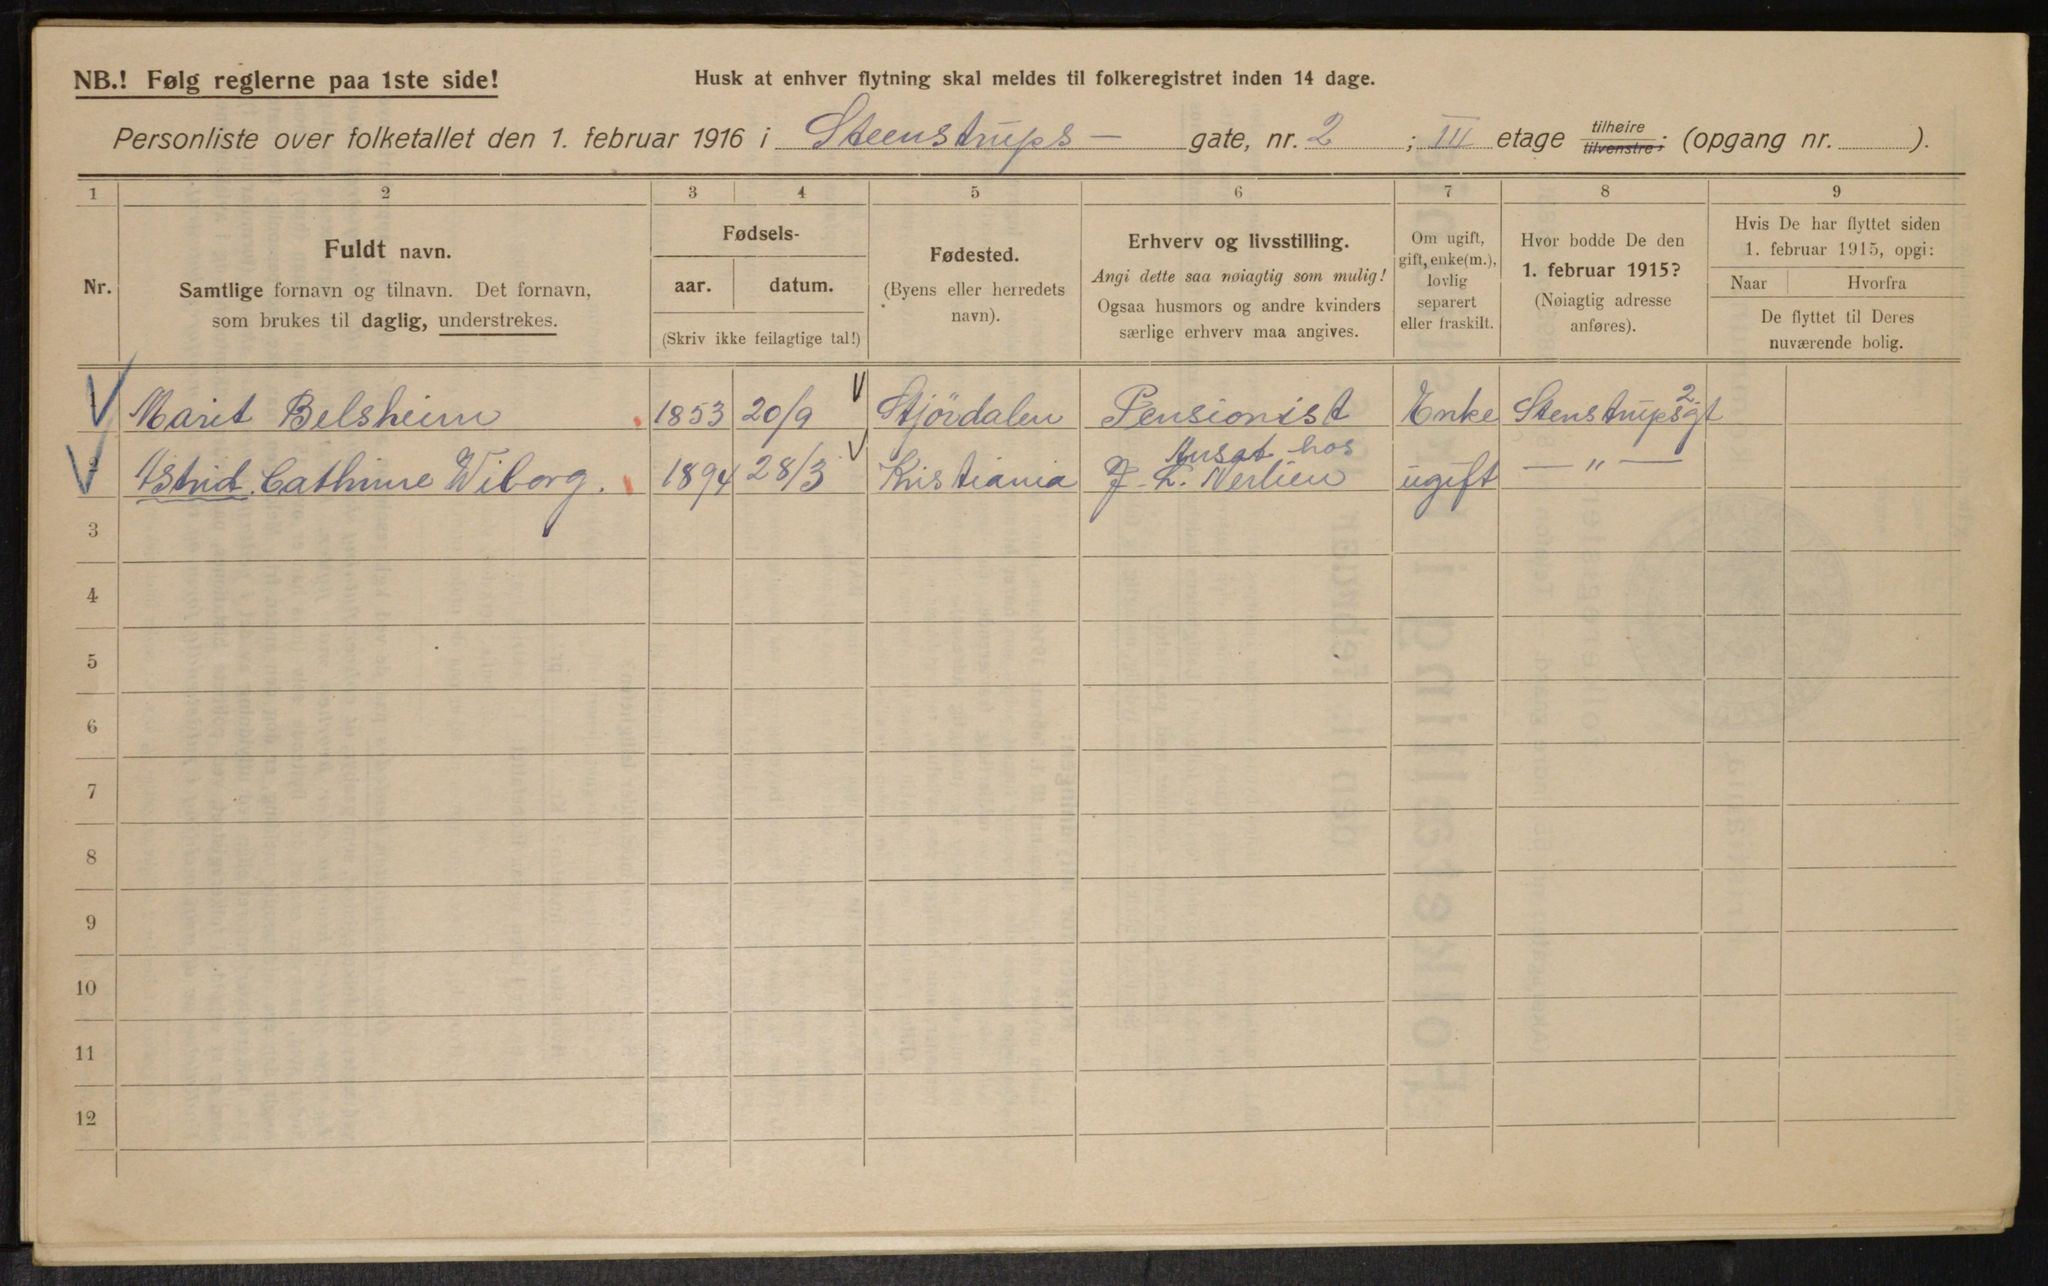 NB.! Følg reglerne paa 1ste side!
Husk at enhver flytning skal meldes til folkeregistret inden 14 dage.
Personliste over folketallet den 1. februar 1916 i Steenstrups — gate, nr. 2 ; III etage tilhøire tilvenstre; (opgang nr. ).
1 2 3 4 5 6 7 8 9
Nr.
Fuldt navn.
Samtlige fornavn og tilnavn. Det fornavn,
som brukes til daglig, understrekes.
Fødsels-
aar. datum.
(Skriv ikke feilagtige tal!)
Fødested.
(Byens eller herredets
navn).
Erhverv og livsstilling.
Angi dette saa nøiagtig som mulig!
Ogsaa husmors og andre kvinders
særlige erhverv maa angives.
Om ugift,
gift, enke(m.),
lovlig
separert
eller fraskilt.
Hvor bodde De den
1. februar 1915?
(Nøiagtig adresse
anføres).
Hvis De har flyttet siden
1. februar 1915, opgi:
Naar Hvorfra
De flyttet til Deres
nuværende bolig.
Marit Belsheim 1853 20/9 Stjördalen Pensionist Enke Stenstrupsgt 2
2 Astrid Cathrine Wiborg. 1894 28/3 Kristiania Ansat hos
J. L. Nerlien ugift — " —
3
4
5
6
7
8
9
10
11
12